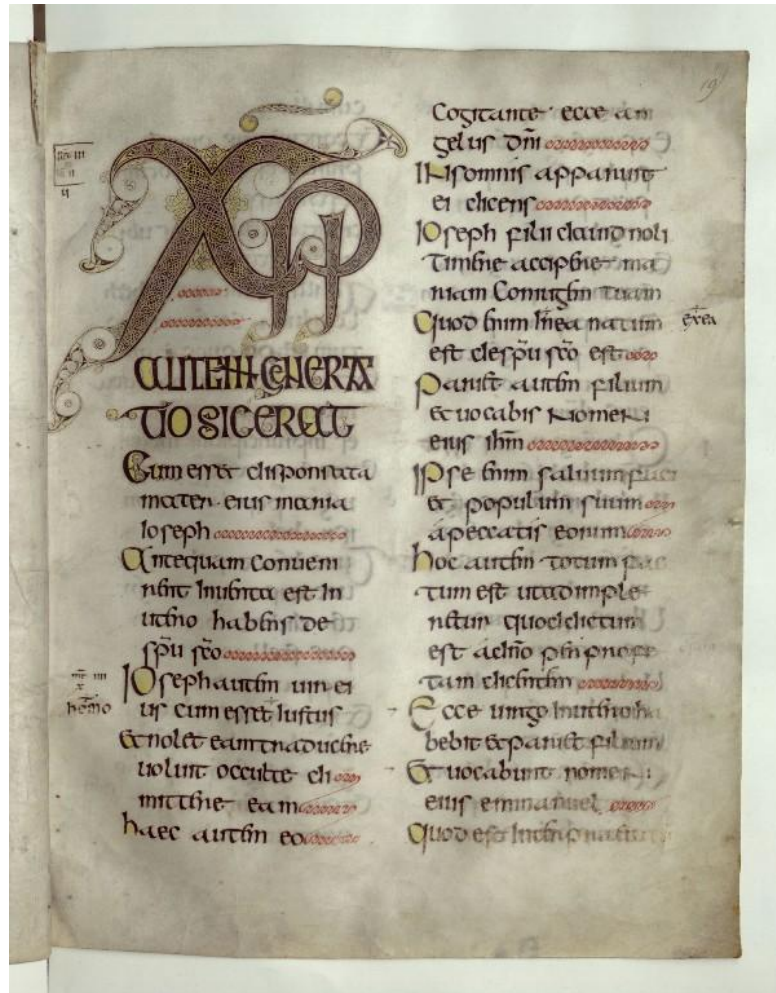 19
XPI
AUTEM GENERA
TIO SIC ERAT
Cum esset disponsata
mater eius maria
ioseph
Antequam conueni
rent inuenta est in
utero habens de
sp̄u sc̄o
Ioseph autem uir ei
us cum esset iustus
Et nolet eam traducere
uoluit occulte di
mittere eam
haec autem eo
homo
Cogitante ecce an
gelus dn̄i
In somnis apparuit
ei dicens
Ioseph filii dauid noli
timere accipere ma
riam coniugem tuam
Quod enim in ea natum
est de sp̄u sc̄o est
Pariet autem filium
et uocabis nomen
eius ih̄m
Ipse enim saluum faci
et populum suum
a peccatis eorum
hoc autem totum fac
tum est ut adimple
retur quod dictum
est a dn̄o per profe
tam dicentem
Ecce uirgo in utero ha
bebit et pariet filium
Et uocabunt nomen
eius emmanuel
Quod est
ex ea